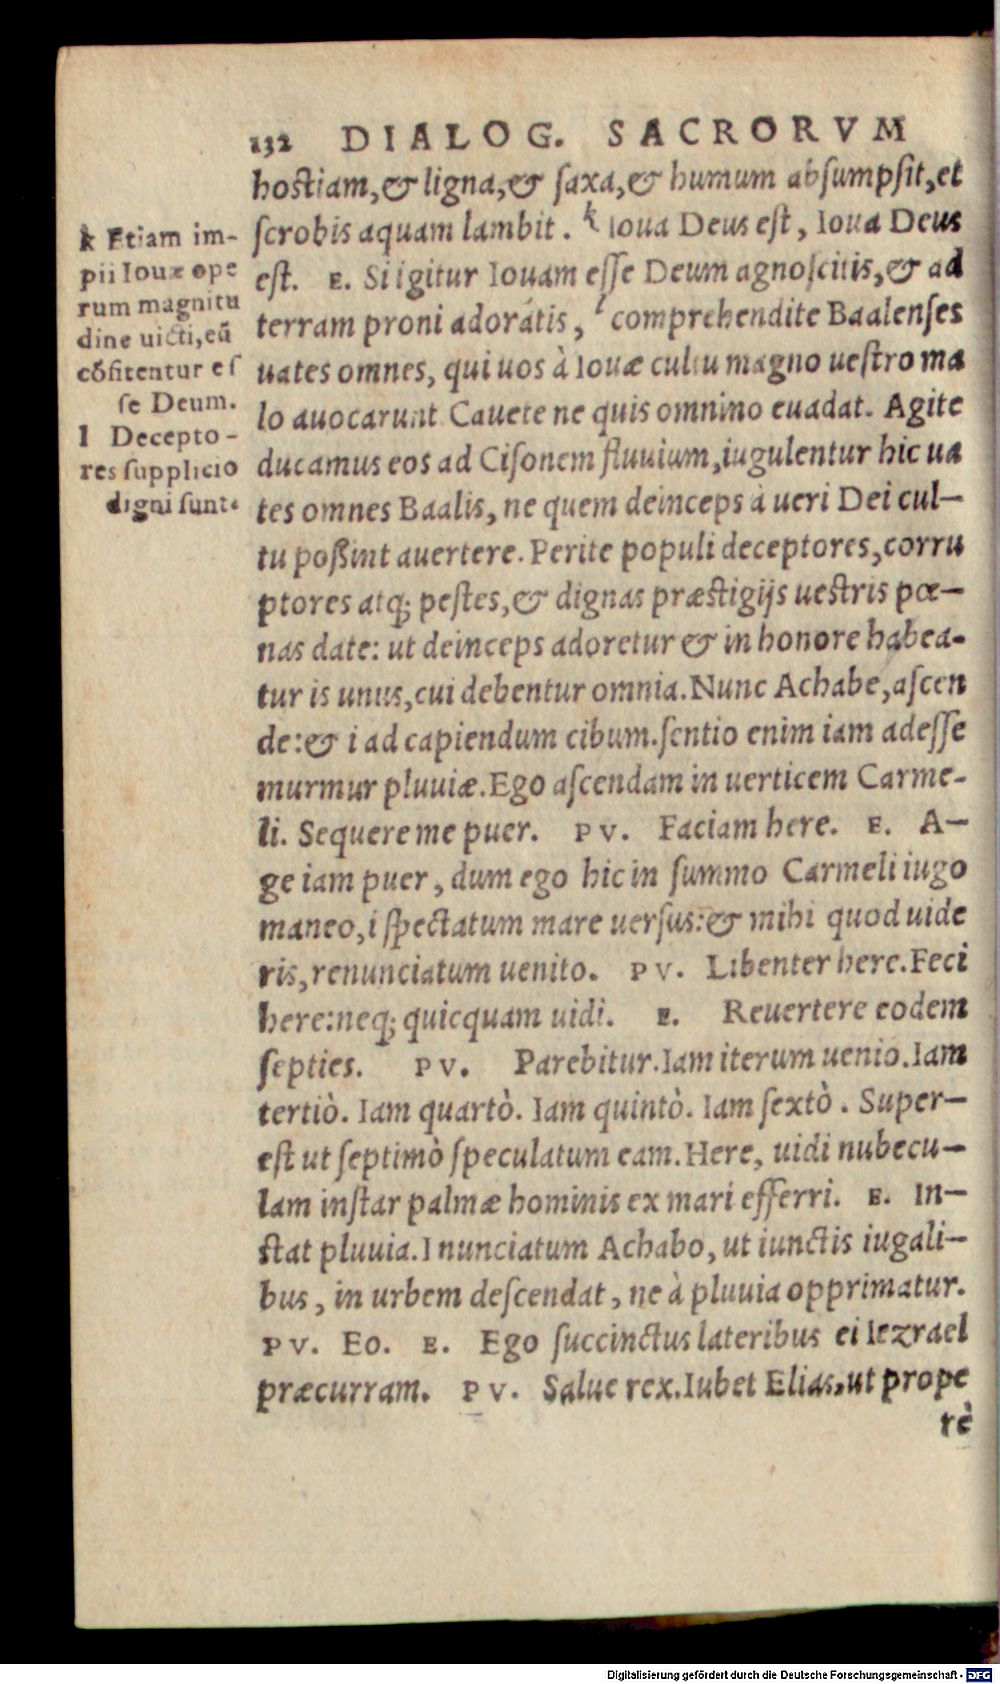 132 DIALOG. SACRORVM
hostiam,& ligna,& ſaxa,& humum abſumpſit,et
ſcrobis aquam lambit . k Ioua Deus eſt, Ioua Deus
eſt. E. Si igitur Iouam eſſe Deum agnoſcitis,& ad
terram proni adorátis, l comprehendite Baalenſes
uates omnes, qui uos à Iouæ cultu magno ueſtro ma
lo auocarunt. Cauete ne quis omnino euadat. Agite
ducamus eos ad Ciſonem fluuium,iugulentur hic ua
tes omnes Baalis, ne quem deinceps à ueri Dei cul-
tu poßint auertere. Perite populi deceptores,corru
ptores atq; peſtes,& dignas præſtigijs ueſtris pœ-
nas date: ut deinceps adoretur & in honore habea-
tur is unus,cui debentur omnia.Nunc Achabe,aſcen
de:& i ad capiendum cibum.ſentio enim iam adeſſe
murmur pluuiæ.Ego aſcendam in uerticem Carme-
li. Sequere me puer. PV. Faciam here. E. A-
ge iam puer, dum ego hic in ſummo Carmeli iugo
maneo,i ſpectatum mare uerſus:& mihi quod uide
ris,renunciatum uenito. PV. Libenter here.Feci
here:neq; quicquam uidi. E. Reuertere eodem
ſepties. PV. Parebitur.Iam iterum uenio.Iam
tertiò. Iam quartò. Iam quintò. Iam ſextò . Super-
eſt ut ſeptimò ſpeculatum eam.Here, uidi nubecu-
lam inſtar palmæ hominis ex mari efferri. E. In-
ſtat pluuia.I nunciatum Achabo, ut iunctis iugali-
bus, in urbem deſcendat, ne à pluuia opprimatur.
PV. Eo. E. Ego ſuccinctus lateribus ei Iezrael
præcurram. PV. Salue rex.Iubet Elias,ut prope
rè
k Etiam im-
pii Iouæ ope
rum magnitu
dine uicti,eū
cōfitentur eſ
ſe Deum.
l Decepto-
res ſupplicio
digni ſunt.
Digitalisierung gefördert durch die Deutsche Forschungsgemeinschaft - DFG